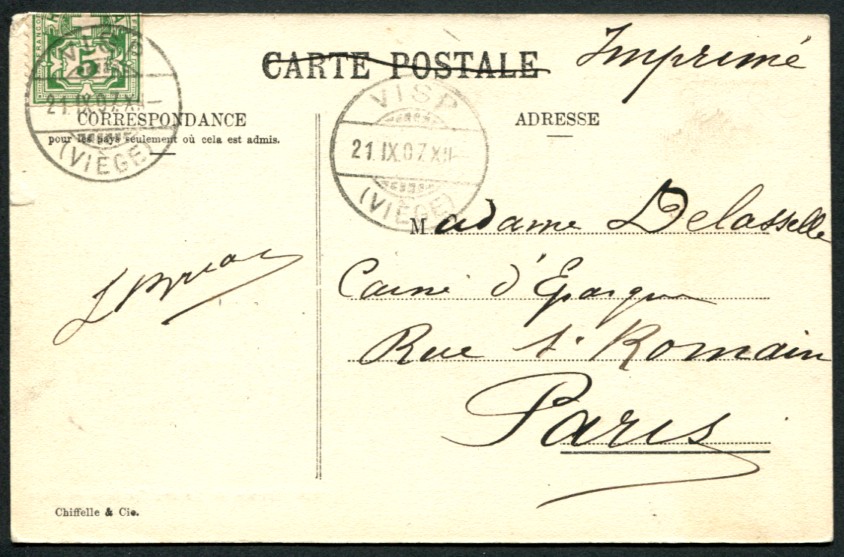 CARTE POSTALE
Imprimé
5
VISP
21.IX.07.XII–
(VIÈGE)
VISP
21.IX.07.XII–
(VIÈGE)
CORRESPONDANCE
pour les pays seulement où cela est admis.
ADRESSE
Madame Delasselle
d'Epargne
Rue St Romain
Paris
Chiffelle & Cie.